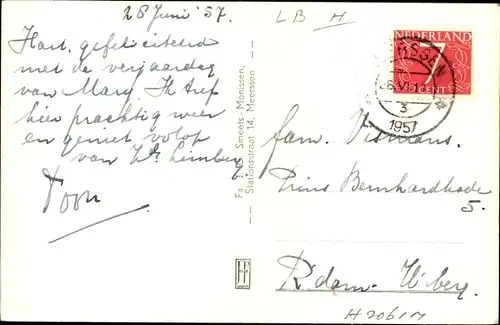 28 Juni '57.
Hart. gefeliciteerd
met de verjaardag
van Mary. Ik tref
hier prachtig weer
en geniet volop
van Zd. Limburg
Toon
Fa. J. H. Smeets-Monissen,
Stationsstraat 14, Meerssen
LB H
NEDERLAND
7
CENT
SSEN
3
1957
Fam. Vismans.
Prins Bernhardkade
5.
R'dam. H'berg.
H2061M